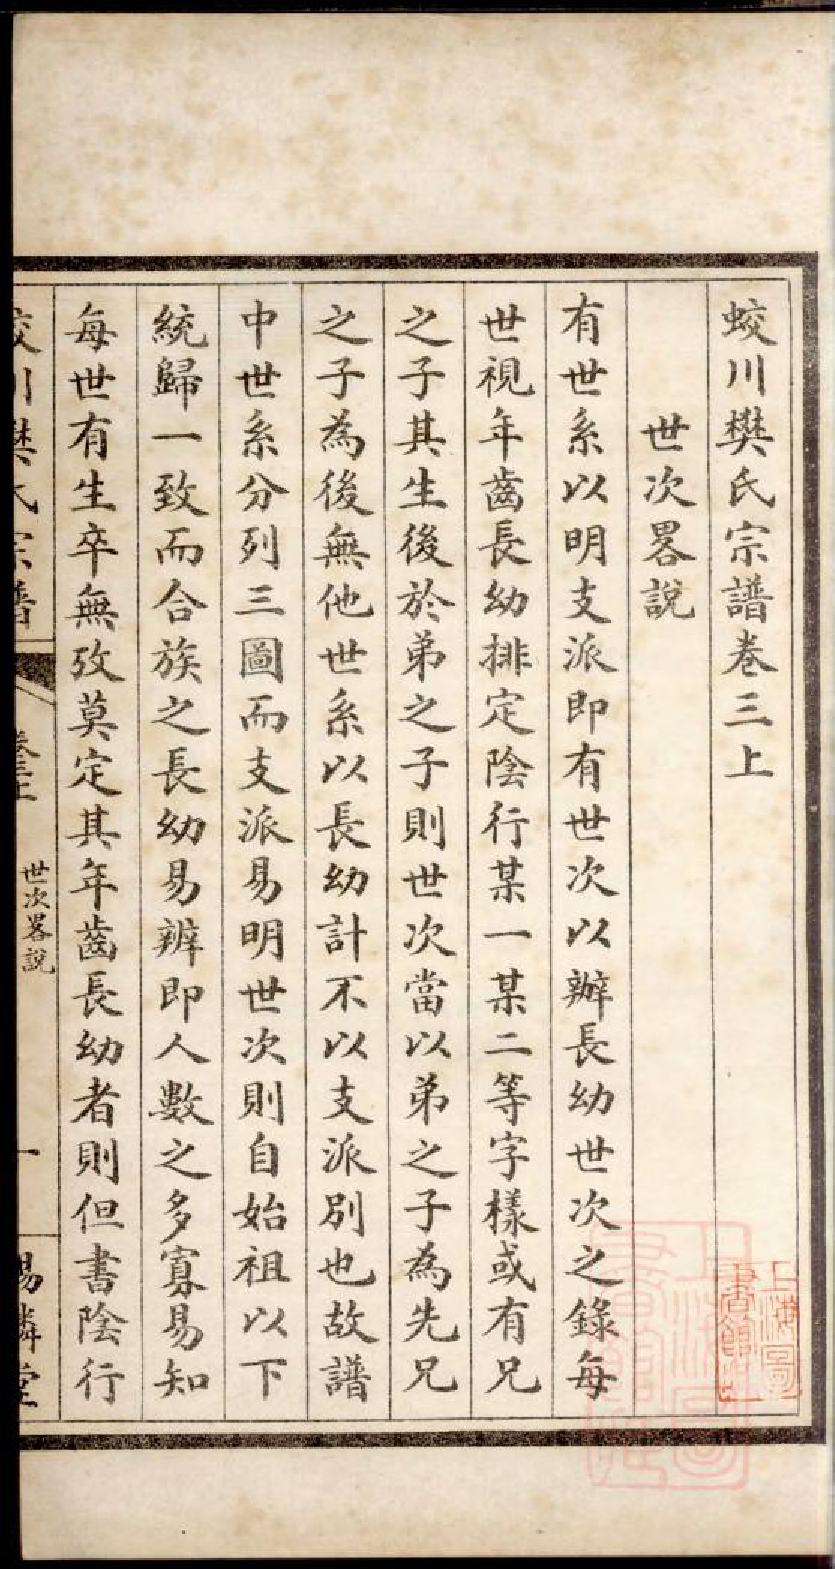 蛟川樊氏宗譜卷三上
世次畧說
有世系以明支派即有世次以辦長幼世次之錄每
世視年齒長幼排定陰行某一某二等字樣或有兄
之子其生後於弟之子則世次當以弟之子為先兄
之子為後無他世系以長幼計不以支派別也故譜
中世系分列三圖而支派易明世次則自始祖以下
統歸一致而合族之長幼易辨即人數之多寡易知
每世有生卒無攷莫定其年齒長幼者則但書陰行
蛟川樊氏宗譜
卷三上
世次畧說
一
上海圖書館藏